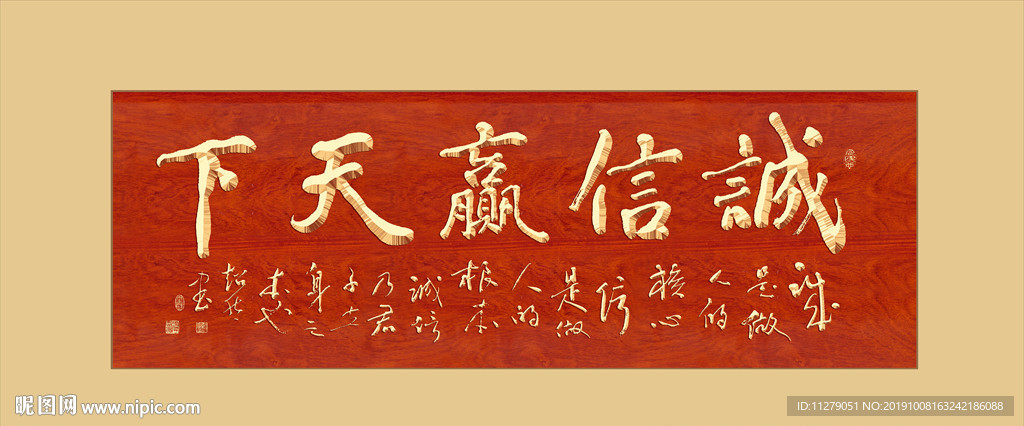 誠信贏天下
誠
是做
人的
核心
信
是做
人的
根本
誠信
乃君
子立
身之
本也
昵图网 www.nipic.com
ID:11279051 NO:20191008163242186088